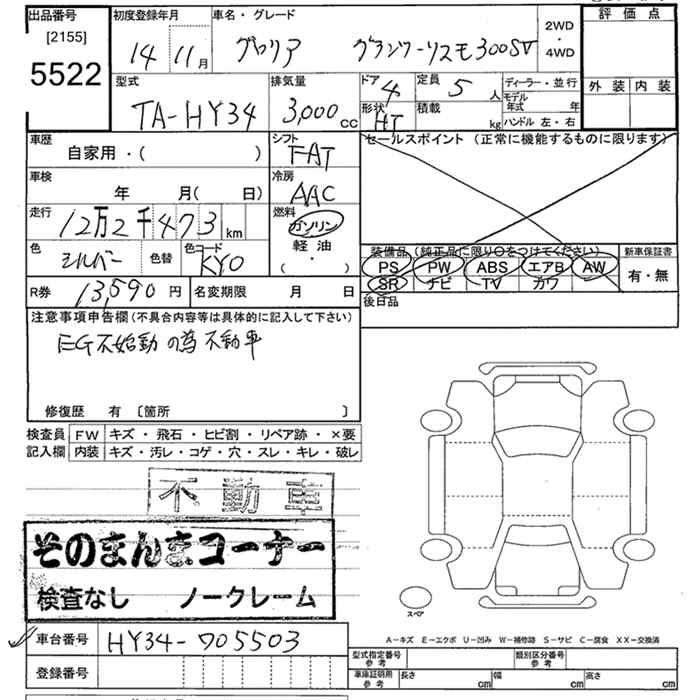 出品番号
[2155]
5522
初度登録年月
14 11月
車名・グレード
グロリア グランツーリスモ300SV
2WD
・
4WD
評価点
外装 内装
型式
TA-HY34
排気量
3,000cc
ドア 4
形状 HT
定員 5人
積載 kg
ディーラー・並行
モデル年式 年
ハンドル 左・右
車歴
自家用・( )
シフト
FAT
セールスポイント (正常に機能するものに限ります)
車検
年 月( 日)
冷房
AAC
走行
12万2千473km
燃料
ガソリン
軽油
( ・ )
色
シルバー
色替
色コード
KY0
装備品 (純正品に限り○をつけてください)
PS PW ABS エアB AW
SR ナビ TV カワ
新車保証書
有・無
R券 13,590円
名変期限 月 日
後日品
注意事項申告欄(不具合内容等は具体的に記入して下さい)
EG不始動の為不動車
修復歴 有 〔箇所 〕
検査員 FW キズ・飛石・ヒビ割・リペア跡・×要
記入欄 内装 キズ・汚レ・コゲ・穴・スレ・キレ・破レ
不動車
そのまんまコーナー
検査なし ノークレーム
スペア
A-キズ E-エクボ U-凹み W-補修跡 S-サビ C-腐食 XX-交換済
車台番号 HY34-705503
登録番号
型式指定番号
参考
類別区分番号
参考
車庫証明用
参考
長さ cm 幅 cm 高さ cm